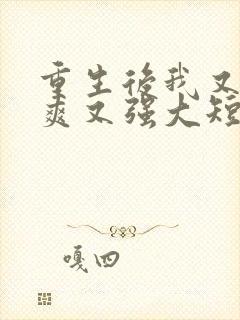 重生后我又
爽又强大短
嘎四